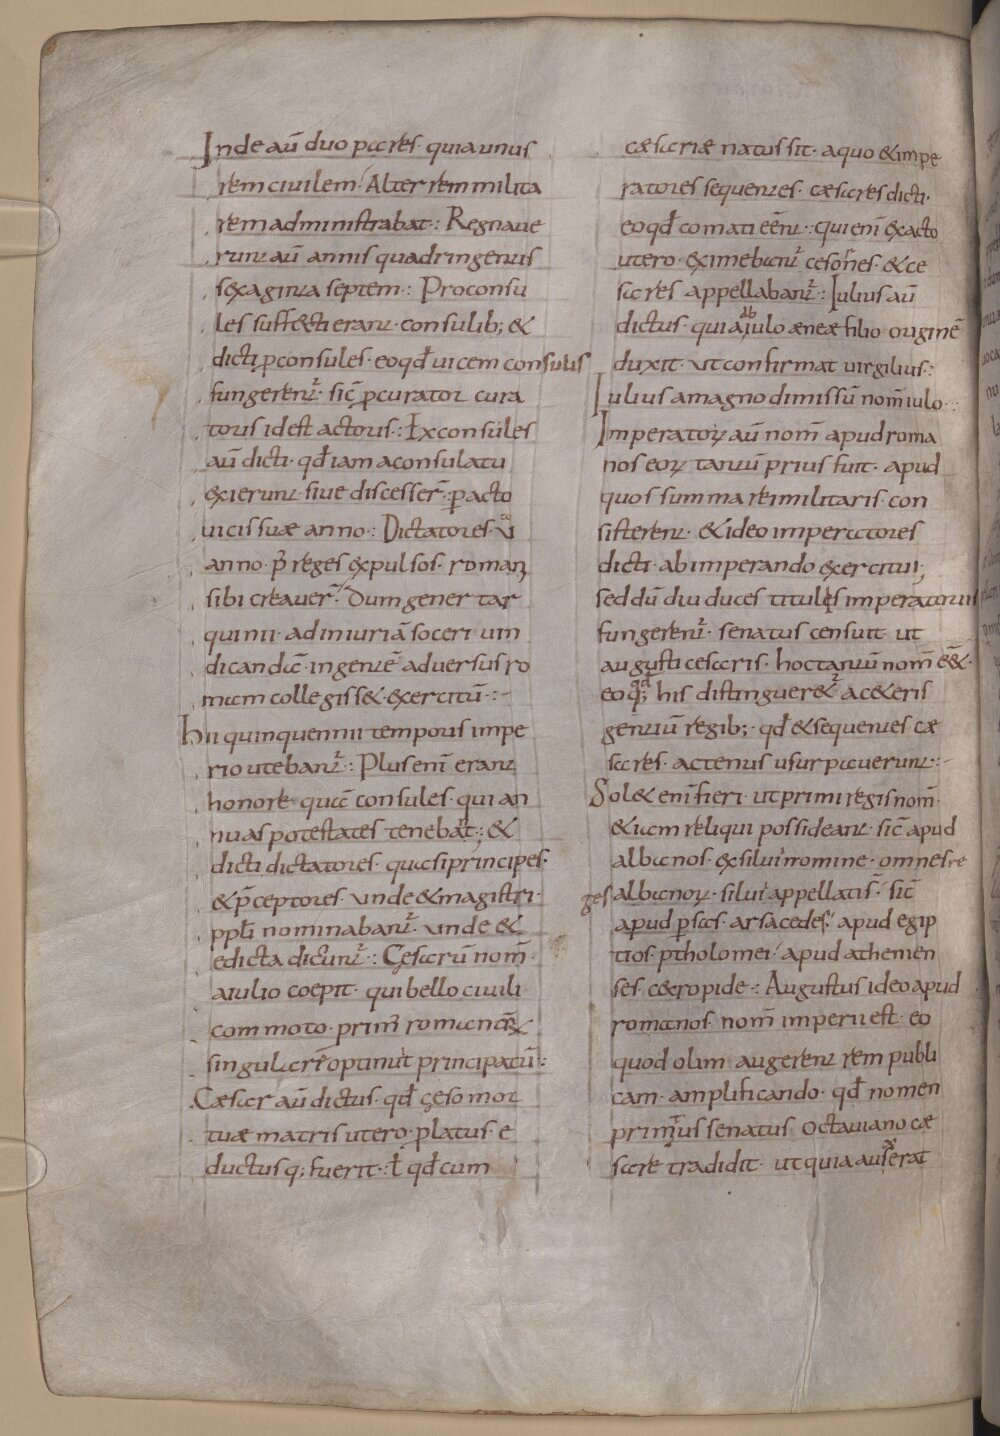 Inde aū duo pares· quia unus
rem ciuilem· Alter rem milita
rem administrabat·: Regnaue
runt aū annis quadringentis
sexaginta septem·: Proconsu
les suffecti erant· consulib; &
dicti ꝓconsules· eo qđ uicem consulis
fungerent̄· sic̄ ꝓcurator cura
toris id est actoris·: Exconsules
aū dicti· qđ iam a consulatu
exierunt· siue discesser̄· ꝑacto
uicis suæ anno·: Dictatores· v̄
anno· p̄ reges expulsos· romani
sibi creauer̄· Dum gener tar
quinii· ad iniuriā soceri uin
dicandā· ingentē aduersus ro
mam collegisset· exercitū·:-
Hii quinquennii temporis impe
rio utebant̄·: Plus enī erant
honore· quā consules· qui an
nuas potestates tenebāt·; &
dicti dictatores· quasi principes·
& p̄ceptores· vnde & magistri·
ppłi nominabant̄· vnde &
edicta dicunt̄·: Cęsarū nom̄·
a iulio coepit· qui bello ciuili·
commoto· prim̄ romanoꝝ
singularē optinuit principatū·:
Cæsar aū dictus· qđ cęso mor
tuæ matris utero· ꝓlatus· e
ductusq; fuerit·: ł qđ cum
cæsariæ natus sit· a quo & impe
ratores sequentes· cæsares dicti·
eo qđ comati eēnt·: qui enī exacto
utero· eximebant̄ cesones· & ce
sares appellabant̄·: Iulius aū
dictus· quia ab iulo æneæ filio originē
duxit· vt confirmat uirgilius·:
Iulius a magno dimissū nom̄ iulo·:
Imperatoꝝ aū nom̄ apud roma
nos eoꝝ tantū prius fuit· apud
quos summa rei militaris con
sisteret· & ideo imperatores
dicti· ab imperando exercitui;
sed dū diu duces titulis imperatoriis
fungerent̄· senatus censuit· ut
augusti cesaris· hoc tantū nom̄ eēt·
eoq; qđ his distingueret̄ a ceteris
gentiū regib;· qđ & sequentes cæ
sares· actenus usurpauerunt·:-
Solet enī fieri· ut primi regis nom̄·
& iam reliqui possideant· sic̄ apud
albanos· ex silui nomine· omnes re
ges albanoꝝ· silui appellatis̄· sic̄
apud ꝑsas· arsacedes· apud egip
tios· ptholomei· apud athenien
ses· cecropide·: Augustus ideo apud
romanos· nom̄ imperii est· eo
quod olim augerent rem publi
cam· amplificando· qđ nomen
primitus senatus octauiano cæ
sare tradidit· ut quia auxerat